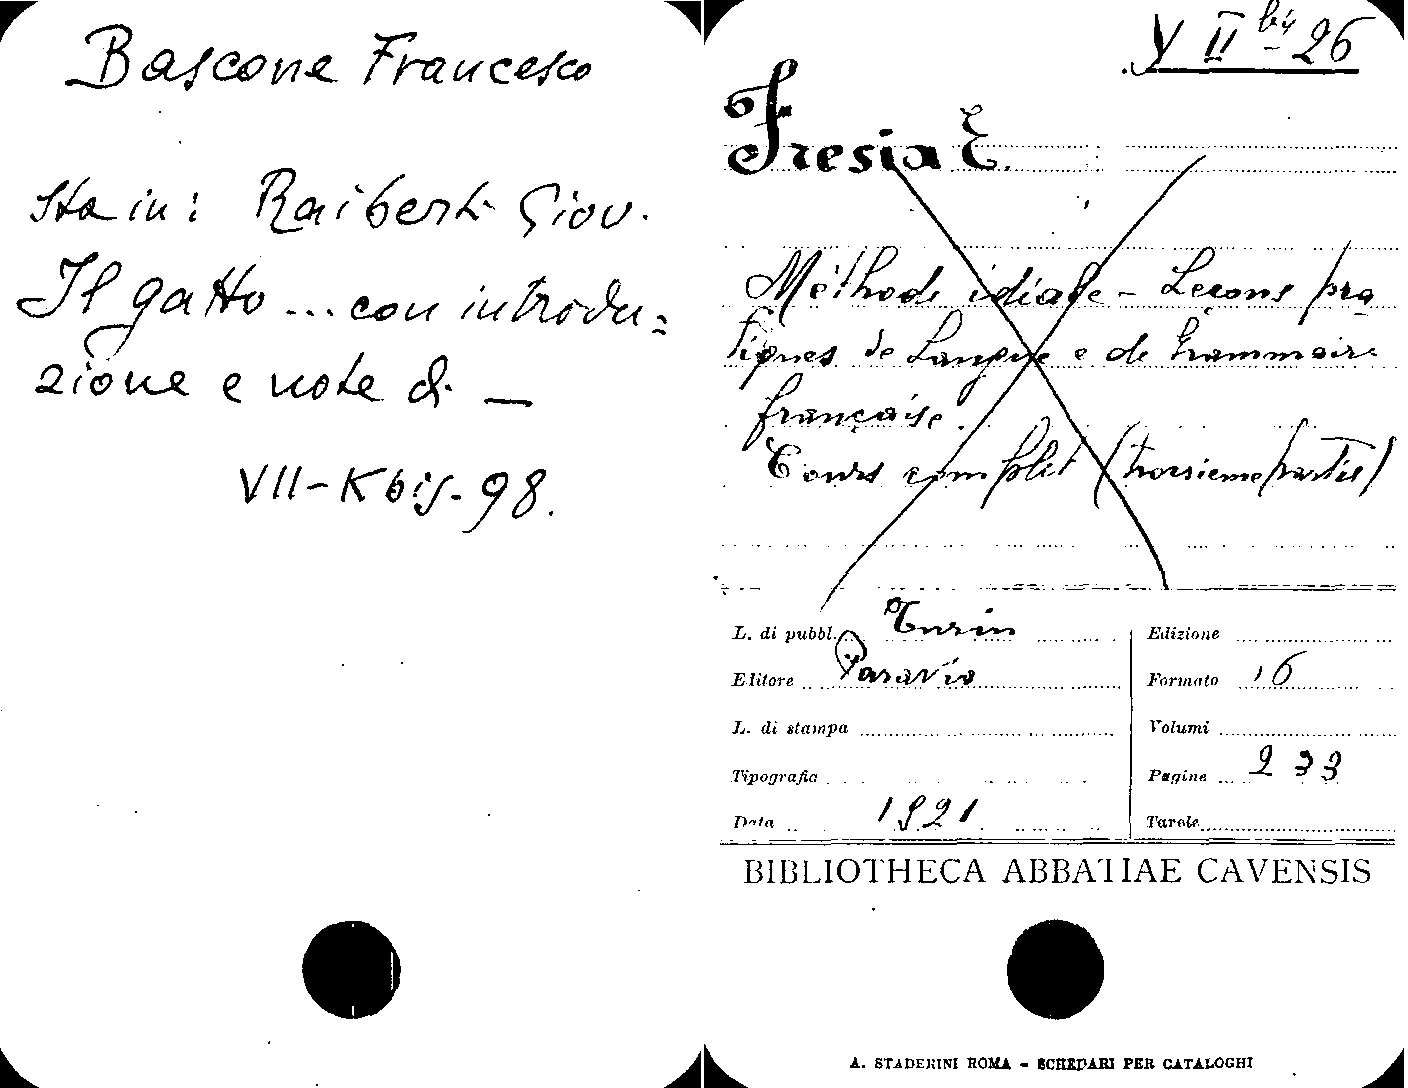 Bascone Francesco
sta in: Raiberti Giov.
Il gatto ... con introdu=
zione e note di —
VII-K bis-98.
Y II bis 26
Fresia E.
Méthode idéale - Leçons pra
tiques de Langue e de Grammaire
française.
Cours complet (troisieme partie)
L. di pubbl. Turin
Editore Paravia
L. di stampa
Tipografia
Data 1921
Edizione
Formato 16
Volumi
Pagine 233
Tavole
BIBLIOTHECA ABBATIAE CAVENSIS
A. STADERINI ROMA - SCHEDARI PER CATALOGHI